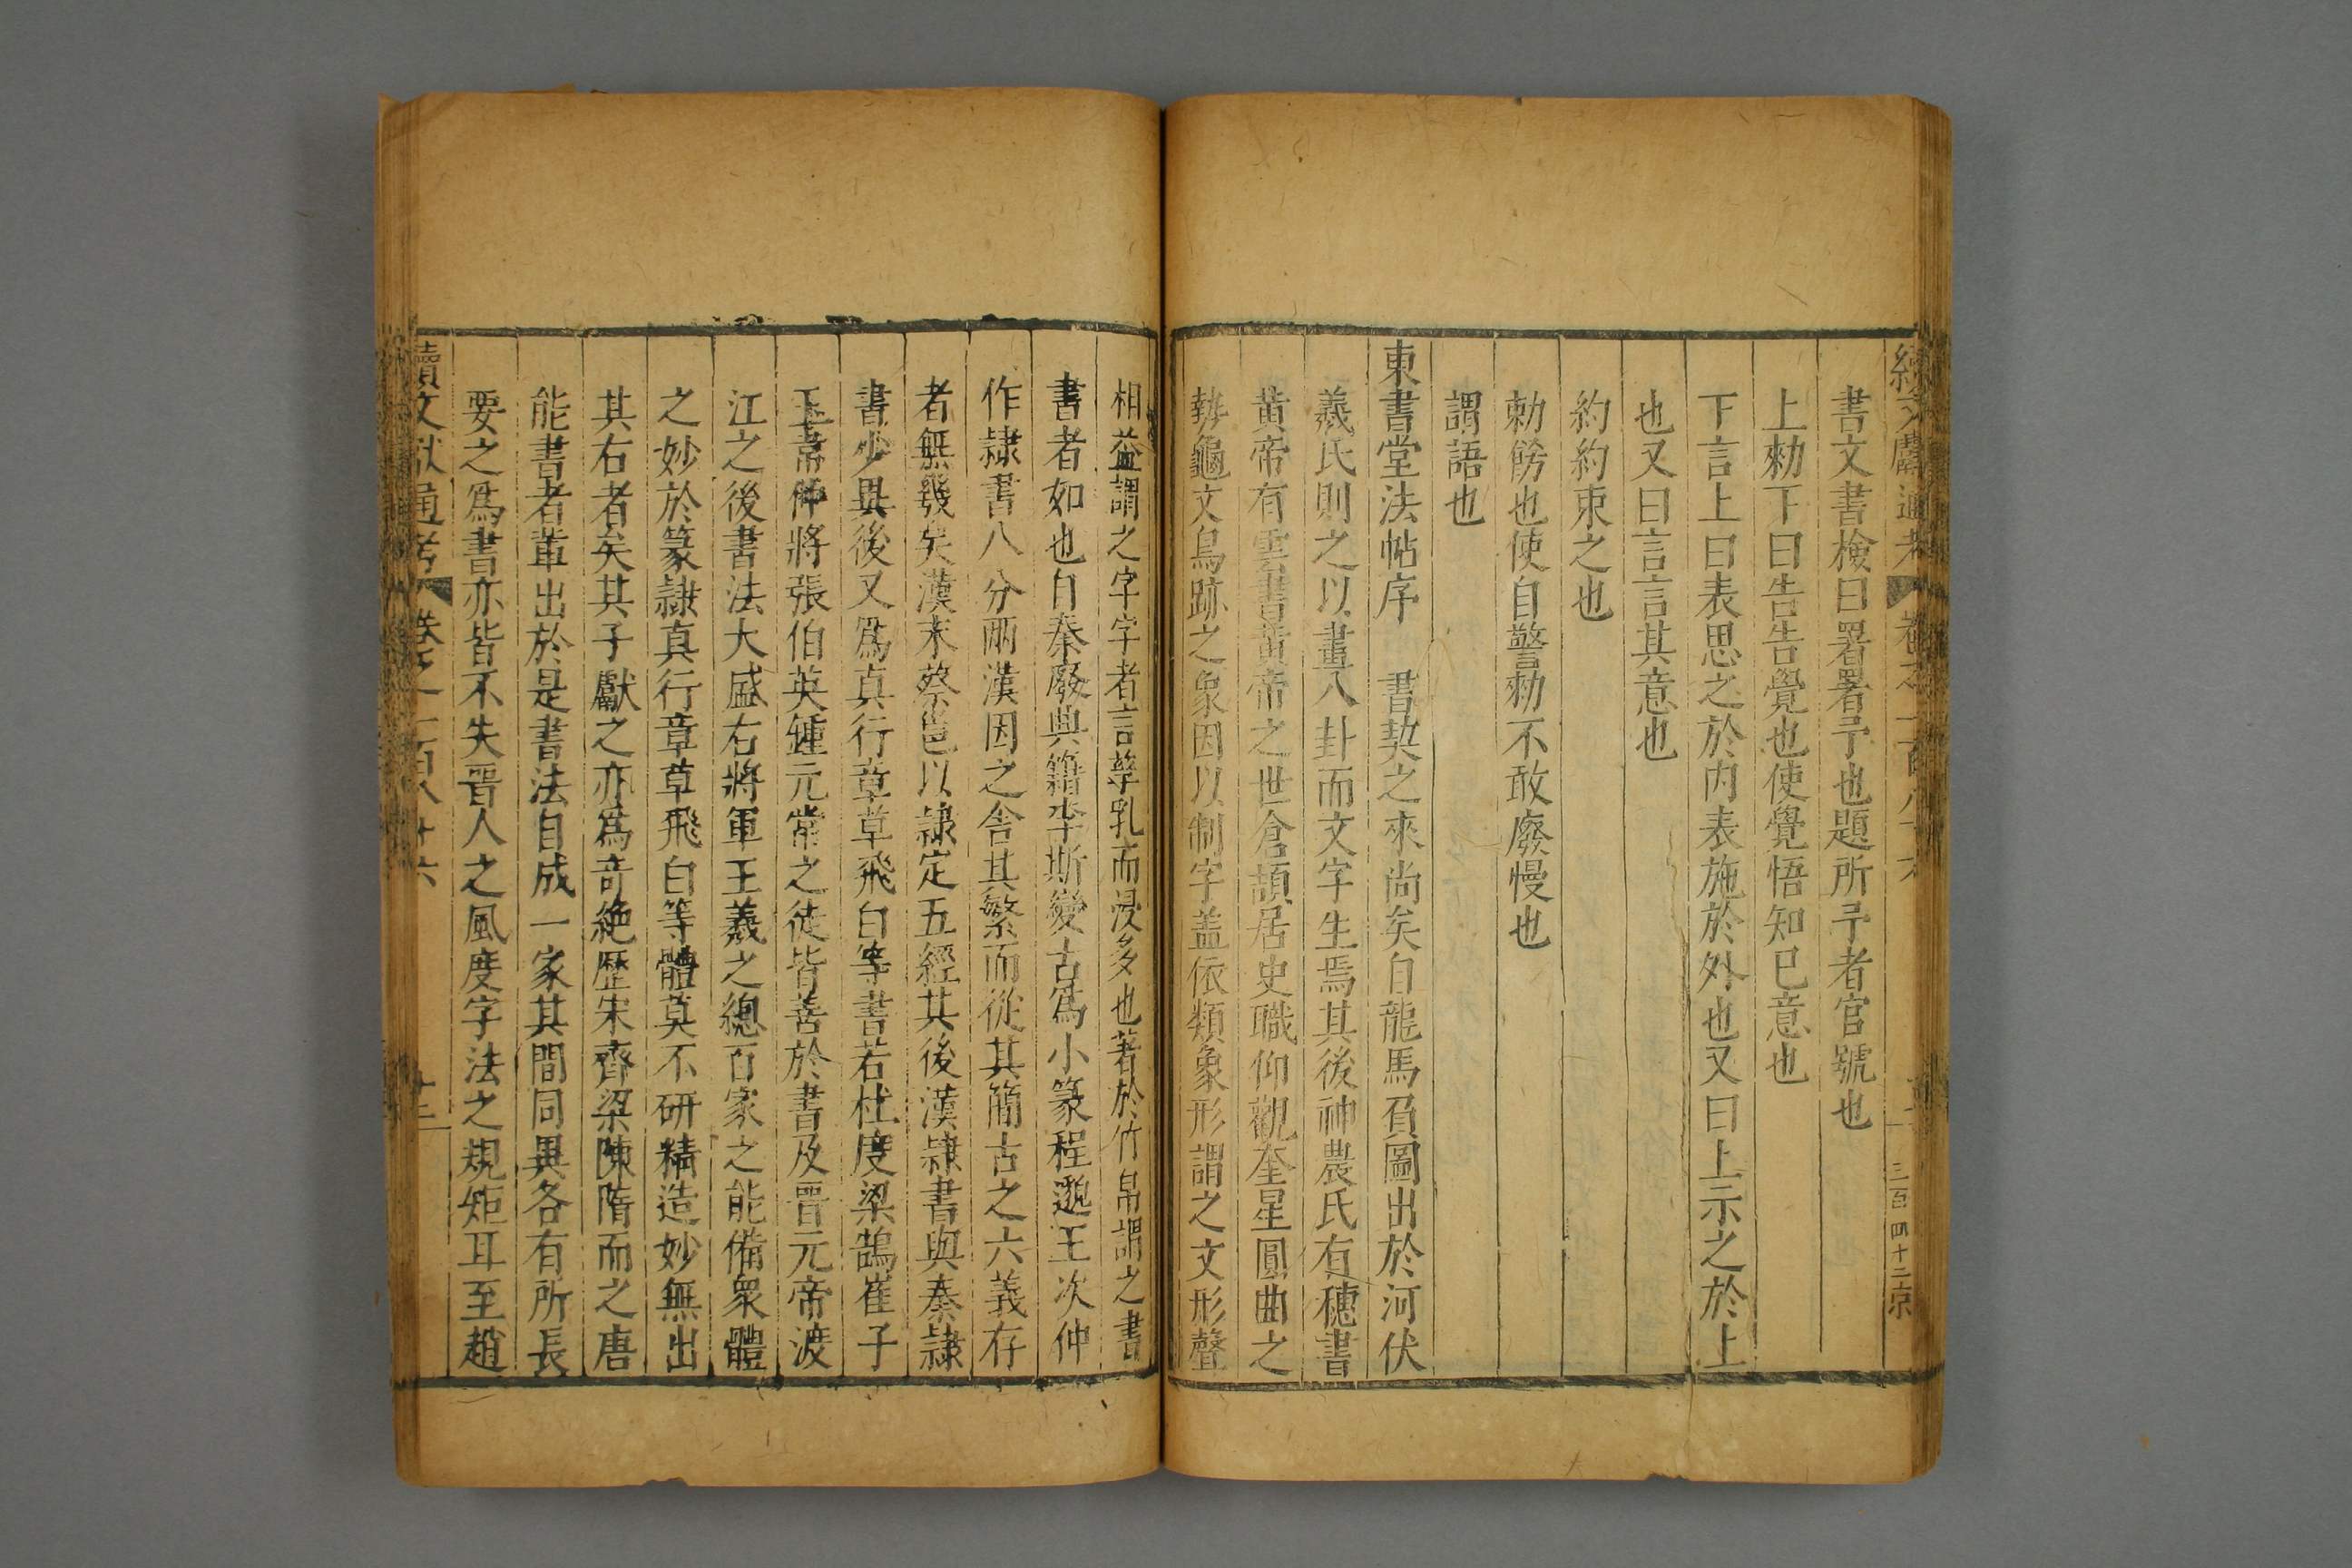 續文獻通考 卷之一百八十六 三百四十二 京
書文書檢曰署署予也題所予者官號也
上勑下曰告告覺也使覺悟知已意也
下言上曰表思之於内表施於外也又曰上示之於上
也又曰言言其意也
約約束之也
勑飭也使自警勑不敢廢慢也
謂語也
東書堂法帖序 書契之來尚矣自龍馬負圖出於河伏
羲氏則之以畫八卦而文字生焉其後神農氏有穗書
黃帝有雲書黃帝之世倉頡居史職仰觀奎星圓曲之
勢龜文鳥跡之象因以制字盖依類象形謂之文形聲
相益謂之字字者言孳乳而浸多也著於竹帛謂之書
書者如也自秦廢典籍李斯變古爲小篆程邈王次仲
作隷書八分兩漢因之舍其繁而從其簡古之六義存
者無幾矣漢末蔡邕以隷定五經其後漢隷書與秦隷
書少異後又爲真行章草飛白等書若杜度梁鵠崔子
玉韋仲將張伯英鍾元常之徒皆善於書及晋元帝渡
江之後書法大盛右將軍王羲之總百家之能備衆體
之妙於篆隷真行章草飛白等體莫不研精造妙無出
其右者矣其子獻之亦爲竒絶歷宋齊梁陳隋而之唐
能書者軰出於是書法自成一家其間同異各有所長
要之爲書亦皆不失晋人之風度字法之規矩耳至趙
續文獻通考 卷之一百八十六 十二